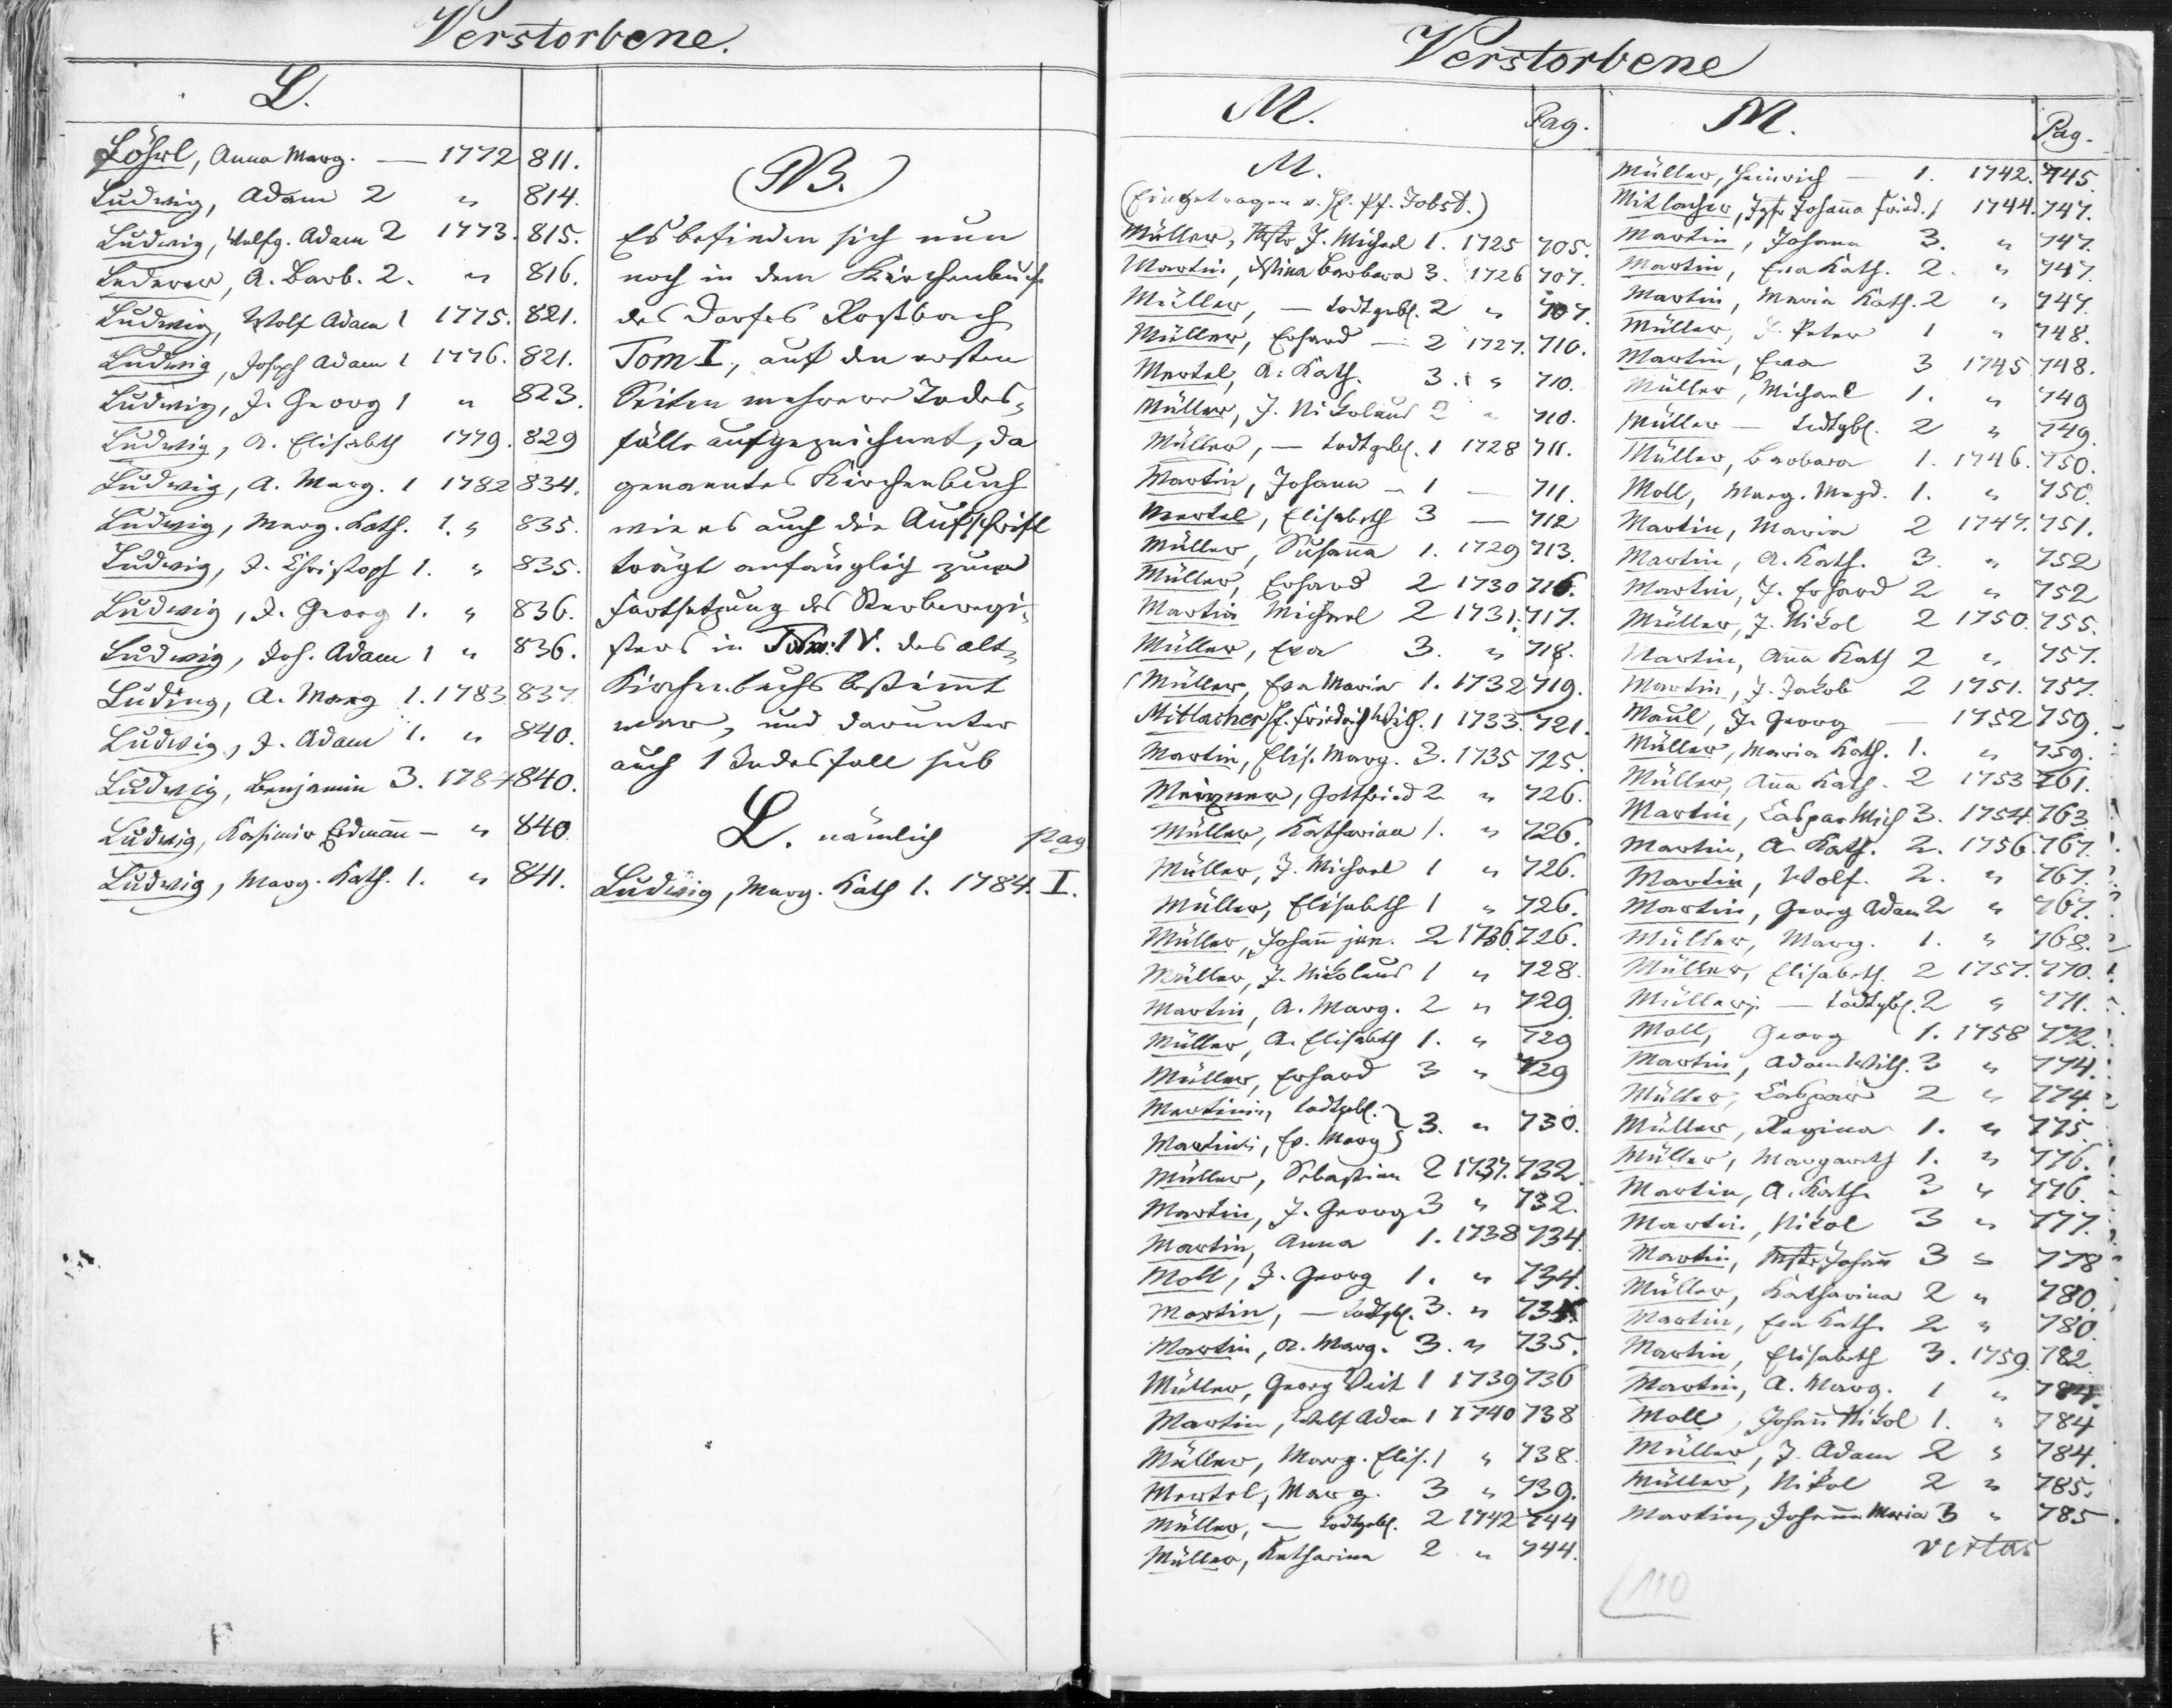 Verstorbene.
L.
Löhrl, Anna Marg. — 1772 811.
Ludwig, Adam 2 " 814.
Ludwig, Wolfg. Adam 2 1773. 815.
Lederer, A. Barb. 2. " 816.
Ludwig, Wolf Adam 1 1775. 821.
Ludwig, Joseph Adam 1 1776. 821.
Ludwig, J. Georg 1 " 823.
Ludwig, A. Elisabeth 1779. 829
Ludwig, A. Marg. 1 1782 834.
Ludwig, Marg. Kath. 1. " 835.
Ludwig, J. Christoph 1. " 835.
Ludwig, J. Georg 1. " 836.
Ludwig, Joh. Adam 1 " 836.
Ludwig, A. Marg 1. 1783 837
Ludwig, J. Adam 1. " 840.
Ludwig, Benjamin 3. 1784 840.
Ludwig, Kasimir Erdmañ — " 840.
Ludwig, Marg. Kath. 1. " 841.
NB.
Es befinden sich nun
noch in dem Kirchenbuch
des Dorfes Roßbach
Tom I, auf den ersten
Seiten mehrere Todes-
fälle aufgezeichnet, da
genanntes Kirchenbuch
wie es auch die Aufschrift
trägt anfänglich zur
Fortsetzung des Sterberegi-
sters in Tom. IV. des alt-
Kirchenbuchs bestimt
war, und darunter
auch 1 Todesfall sub
L. nämlich pag
Ludwig, Marg. Kath 1. 1784. I.
Verstorbene
M. Pag.
M.
(Eingetragen v. H. Pf. Jobst.)
Müller, Mstr J. Michael 1. 1725 705.
Martin, Barbara 3. 1726 707.
Müller, — todtgeb. 2 " 707.
Müller, Erhard — 2 1727. 710.
Mertel, A. Kath. 3. " 710.
Müller, J. Nikolaus 2 " 710.
Müller, — todtgeb. 1 1728 711.
Martin, Johann — 1 — 711.
Mertel, Elisabeth 3 — 712
Müller, Susaña 1. 1729 713.
Müller, Erhard 2 1730 716.
Martin Michael 2 1731. 717.
Müller, Eva 3. " 718.
Müller, Eva Maria 1. 1732 719.
Mitlacher H. Friedrich Wilh. 1 1733. 721.
Martin, Elis. Marg. 3. 1735 725.
Meixner, Gottfried 2 " 726.
Müller, Katharina 1. " 726.
Müller, J. Michael 1 " 726.
Müller, Elisabeth 1 " 726.
Müller, Johañ jun. 2 1736. 726.
Müller, J. Nikolaus 1 " 728.
Martin, A. Marg. 2 " 729.
Müller, A. Elisabeth 1. " 729
Müller, Erhard 3 " 729
Martinin, todtgeb. }
Martini, Ev. Marg } 3. " 730.
Müller, Sebastian 2 1737. 732.
Martin, J. Georg 3 " 732.
Martin, Anna 1. 1738 734.
Moll, J. Georg 1. " 734.
Martin, — todtgeb. 3. " 735.
Martin, A. Marg. 3. " 735.
Müller, Georg Veit 1 1739 736
Martin, Wolf Adam 1 1740 738
Müller, Marg. Elis. 1 " 738.
Mertel, Marg. 3 " 739.
Müller, — todtgeb. 2 1742 744
Müller, Katharina 2 " 744.
M. Pag.
Müller, Heinrich — 1. 1742. 745.
Mitlacher, Jgfr Johaña Fried. 1 1744. 747.
Martin, Johann 3. " 747.
Martin, Eva Kath. 2. " 747.
Martin, Maria Kath. 2 " 747.
Müller, J. Peter 1 " 748.
Martin, Eva 3 1745 748.
Müller, Michael 1. " 749
Müller — todtgeb. 2 " 749.
Müller, Barbara 1. 1746. 750.
Moll, Marg. Magd. 1. " 750.
Martin, Maria 2 1747. 751.
Martin, A. Kath. 3. " 752
Martin, J. Erhard 2 " 752
Müller, J. Nikol 2 1750. 755.
Martin, Aña Kath 2 " 757.
Martin, J. Jakob 2 1751. 757.
Maul, J. Georg — 1752 759.
Müller, Maria Kath. 1. " 759.
Müller, Aña Kath. 2 1753 761.
Martin, Caspar Mich 3. 1754. 763.
Martin, A. Kath. 2. 1756. 767.
Martin, Wolf. 2. " 767.
Martin, Georg Adam 2 " 767.
Müller, Marg. 1. " 768.
Müller, Elisabeth 2 1757. 770.
Müller, — todtgeb. 2 " 771.
Moll, Georg 1. 1758 772.
Martin, Adam Wilh. 3 " 774.
Müller, Caspar 2 " 774.
Müller, Regina 1. " 775.
Müller, Margareth 1. " 776.
Martin, A. Kath. 3 " 776.
Martin, Nikol 3 " 777.
Martin, Mstr Johañ 3 " 778
Müller, Katharina 2 " 780.
Martin, Eva Kath. 2 " 780.
Martin, Elisabeth 3. 1759. 782.
Martin, A. Marg. 1 " 784.
Moll, Johañ Nikol 1. " 784
Müller, J. Adam 2 " 784.
Müller, Nikol 2 " 785.
Martin, Johañ Maria 3 " 785
110